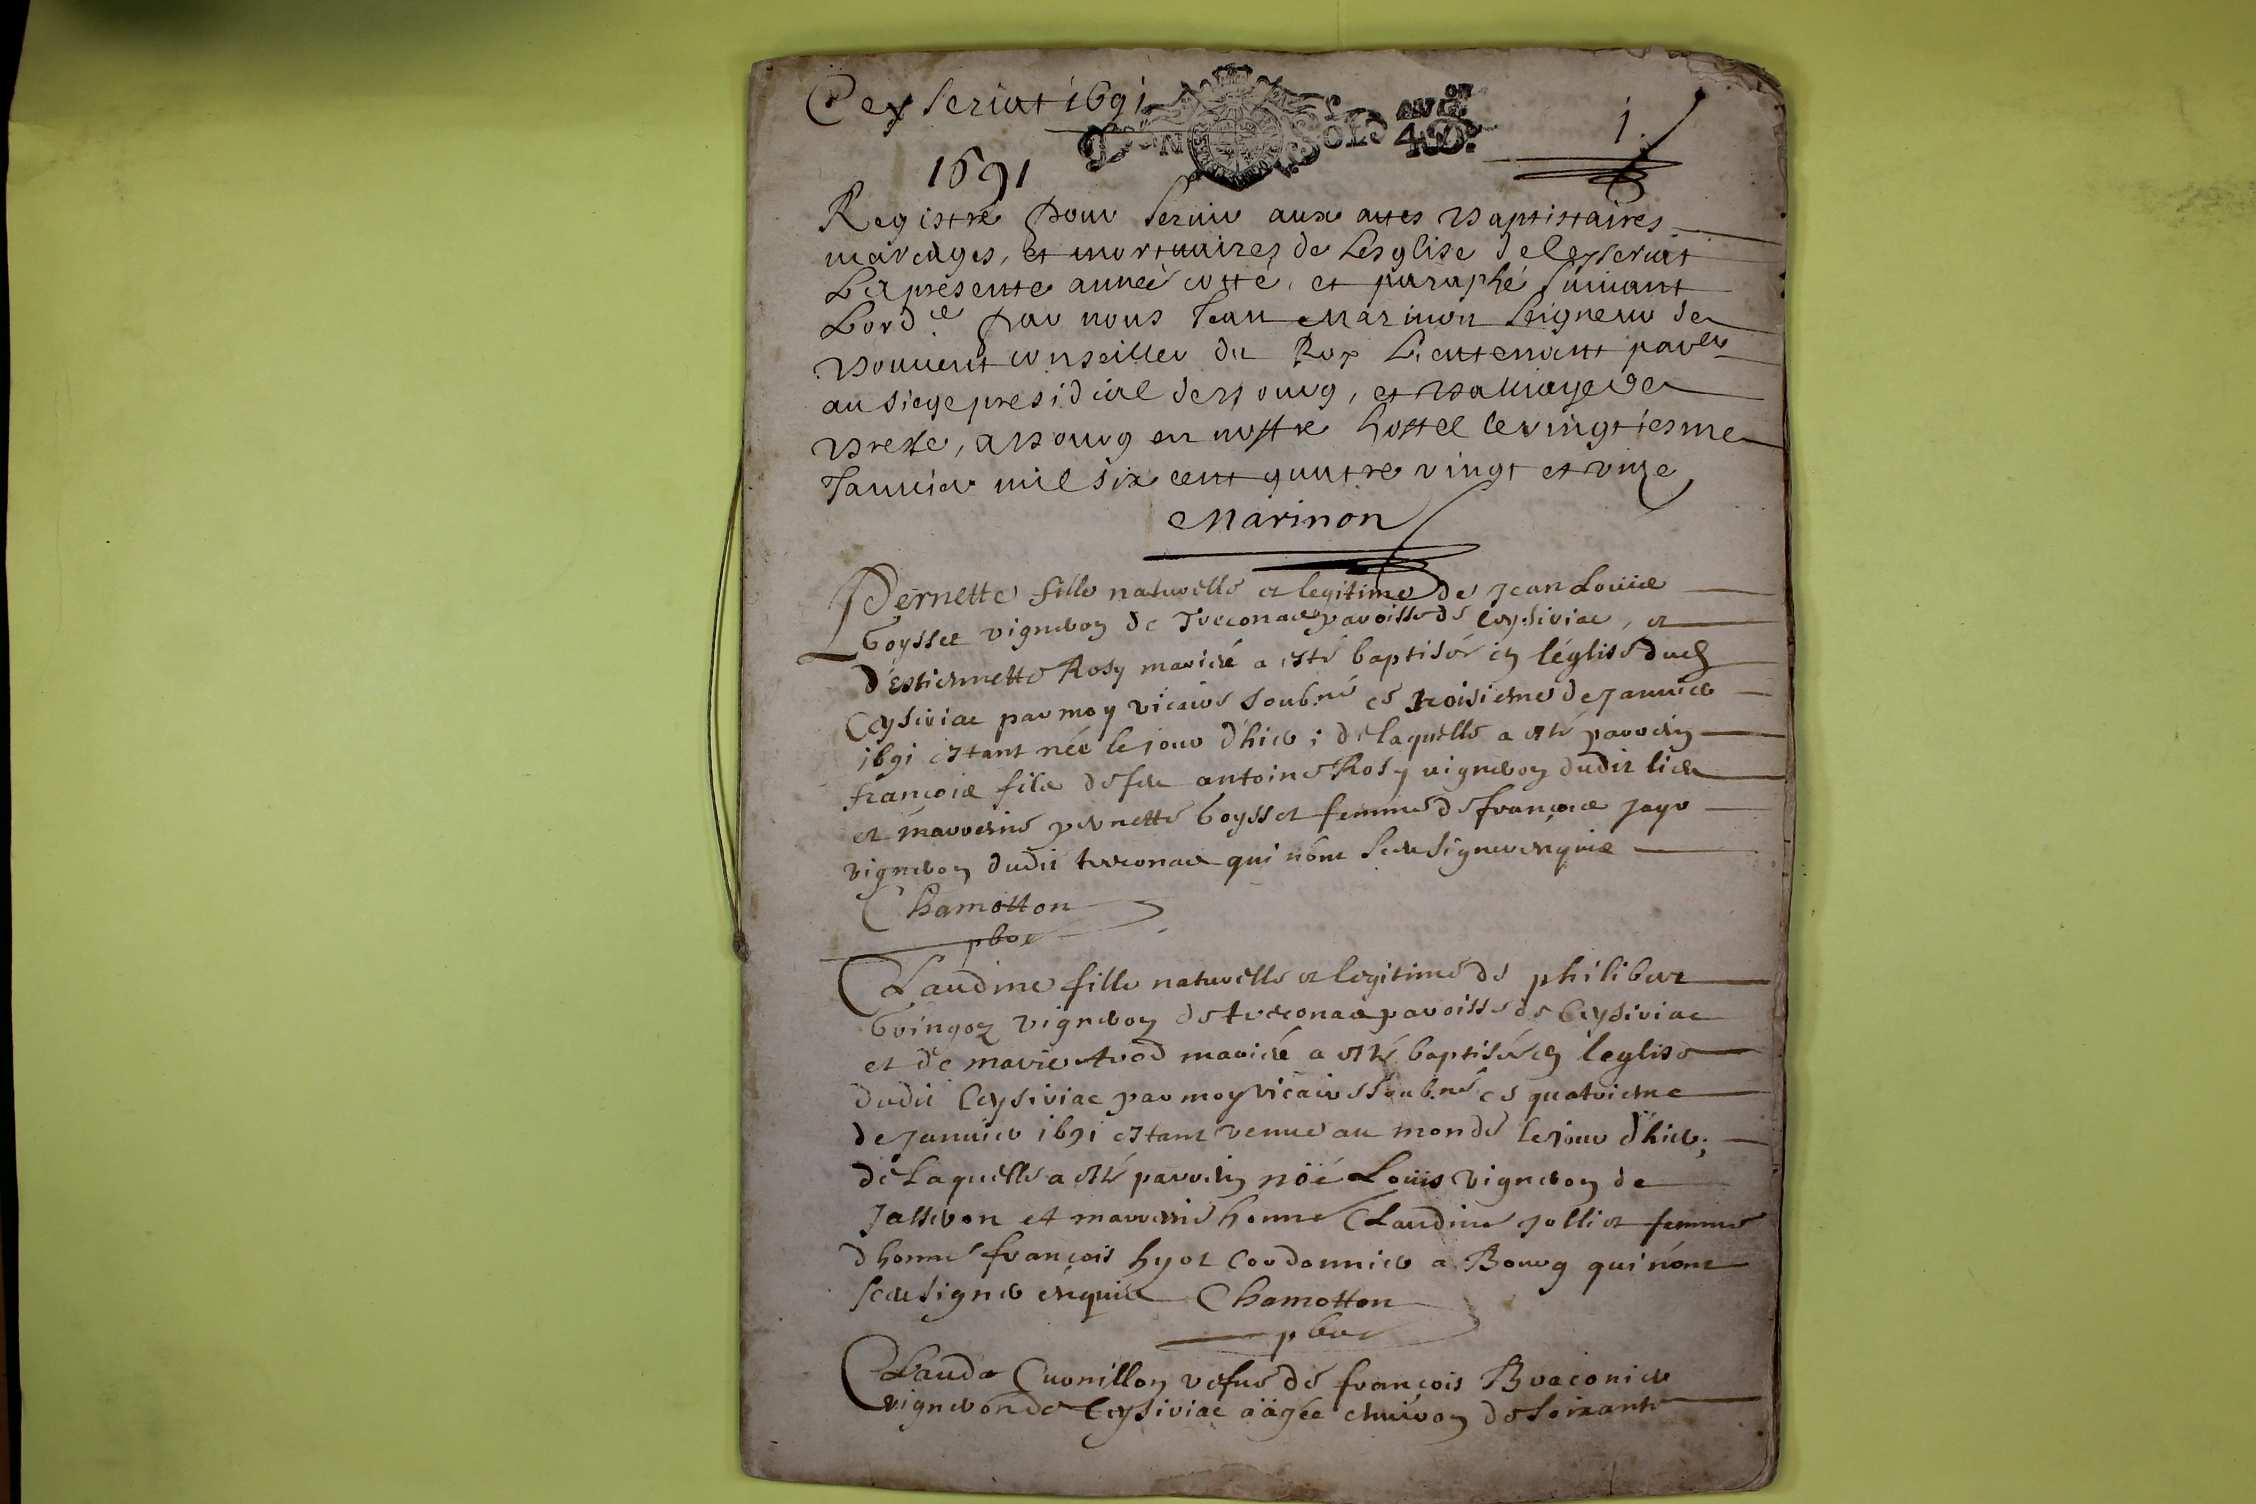 Ceyseriat 1691
UN SOL 4 D.
1.
1691
Registre pour servir aux actes baptistaires
mariages, et mortuaires de Lesglise de Ceyseriat
La presente année cotté, et paraphé suivant
Lord.ce par nous Jean Marinon seigneur de
Bouvent conseiller du Roy Lieutenant par.er
au siege presidial de Bourg, et Balliage de
Bresse, a Bourg en nostre hostel le vingtiesme
Janvier mil six cent quatre vingt et unze
Marinon
Pernette fille naturelle et legitime de Jean Louis
Goysset vigneron de Treconas paroisse de Ceysiriac, et
d'estiennette Rosy mariée a esté baptisée en léglise dud
Ceysiriac par moy vicaire soub.né ce troisieme de Janvier
1691 estant née le jour d'hier ; de laquelle a esté parrein
françois fils de feu antoine Rosy vigneron dudit lieu
et marreine pernette Goysset femme de françois Jayr
vigneron dudit treconas qui n'ont sceu signer enquis
Chamotton
pbre
Claudine fille naturelle et legitime de philibert
Gringoz vigneron de treconas paroisse de Ceysiriac
et de marie Avod mariée a esté baptisée en leglise
dudit Ceysiriac par moy vicaire soub.né ce quatrieme
de Janvier 1691 estant venue au monde le jour d'hier ;
de Laquelle a esté parrein nöé Loüis vigneron de
Jasseron et marreine honne Claudine Jollier femme
d honne françois hyot Cordonnier a Bourg qui n'ont
sceu signer enquis Chamotton
pbre
Clauda Curnillon vefue de françois Braconier
vigneron de Ceysiriac aägée environ de soixante